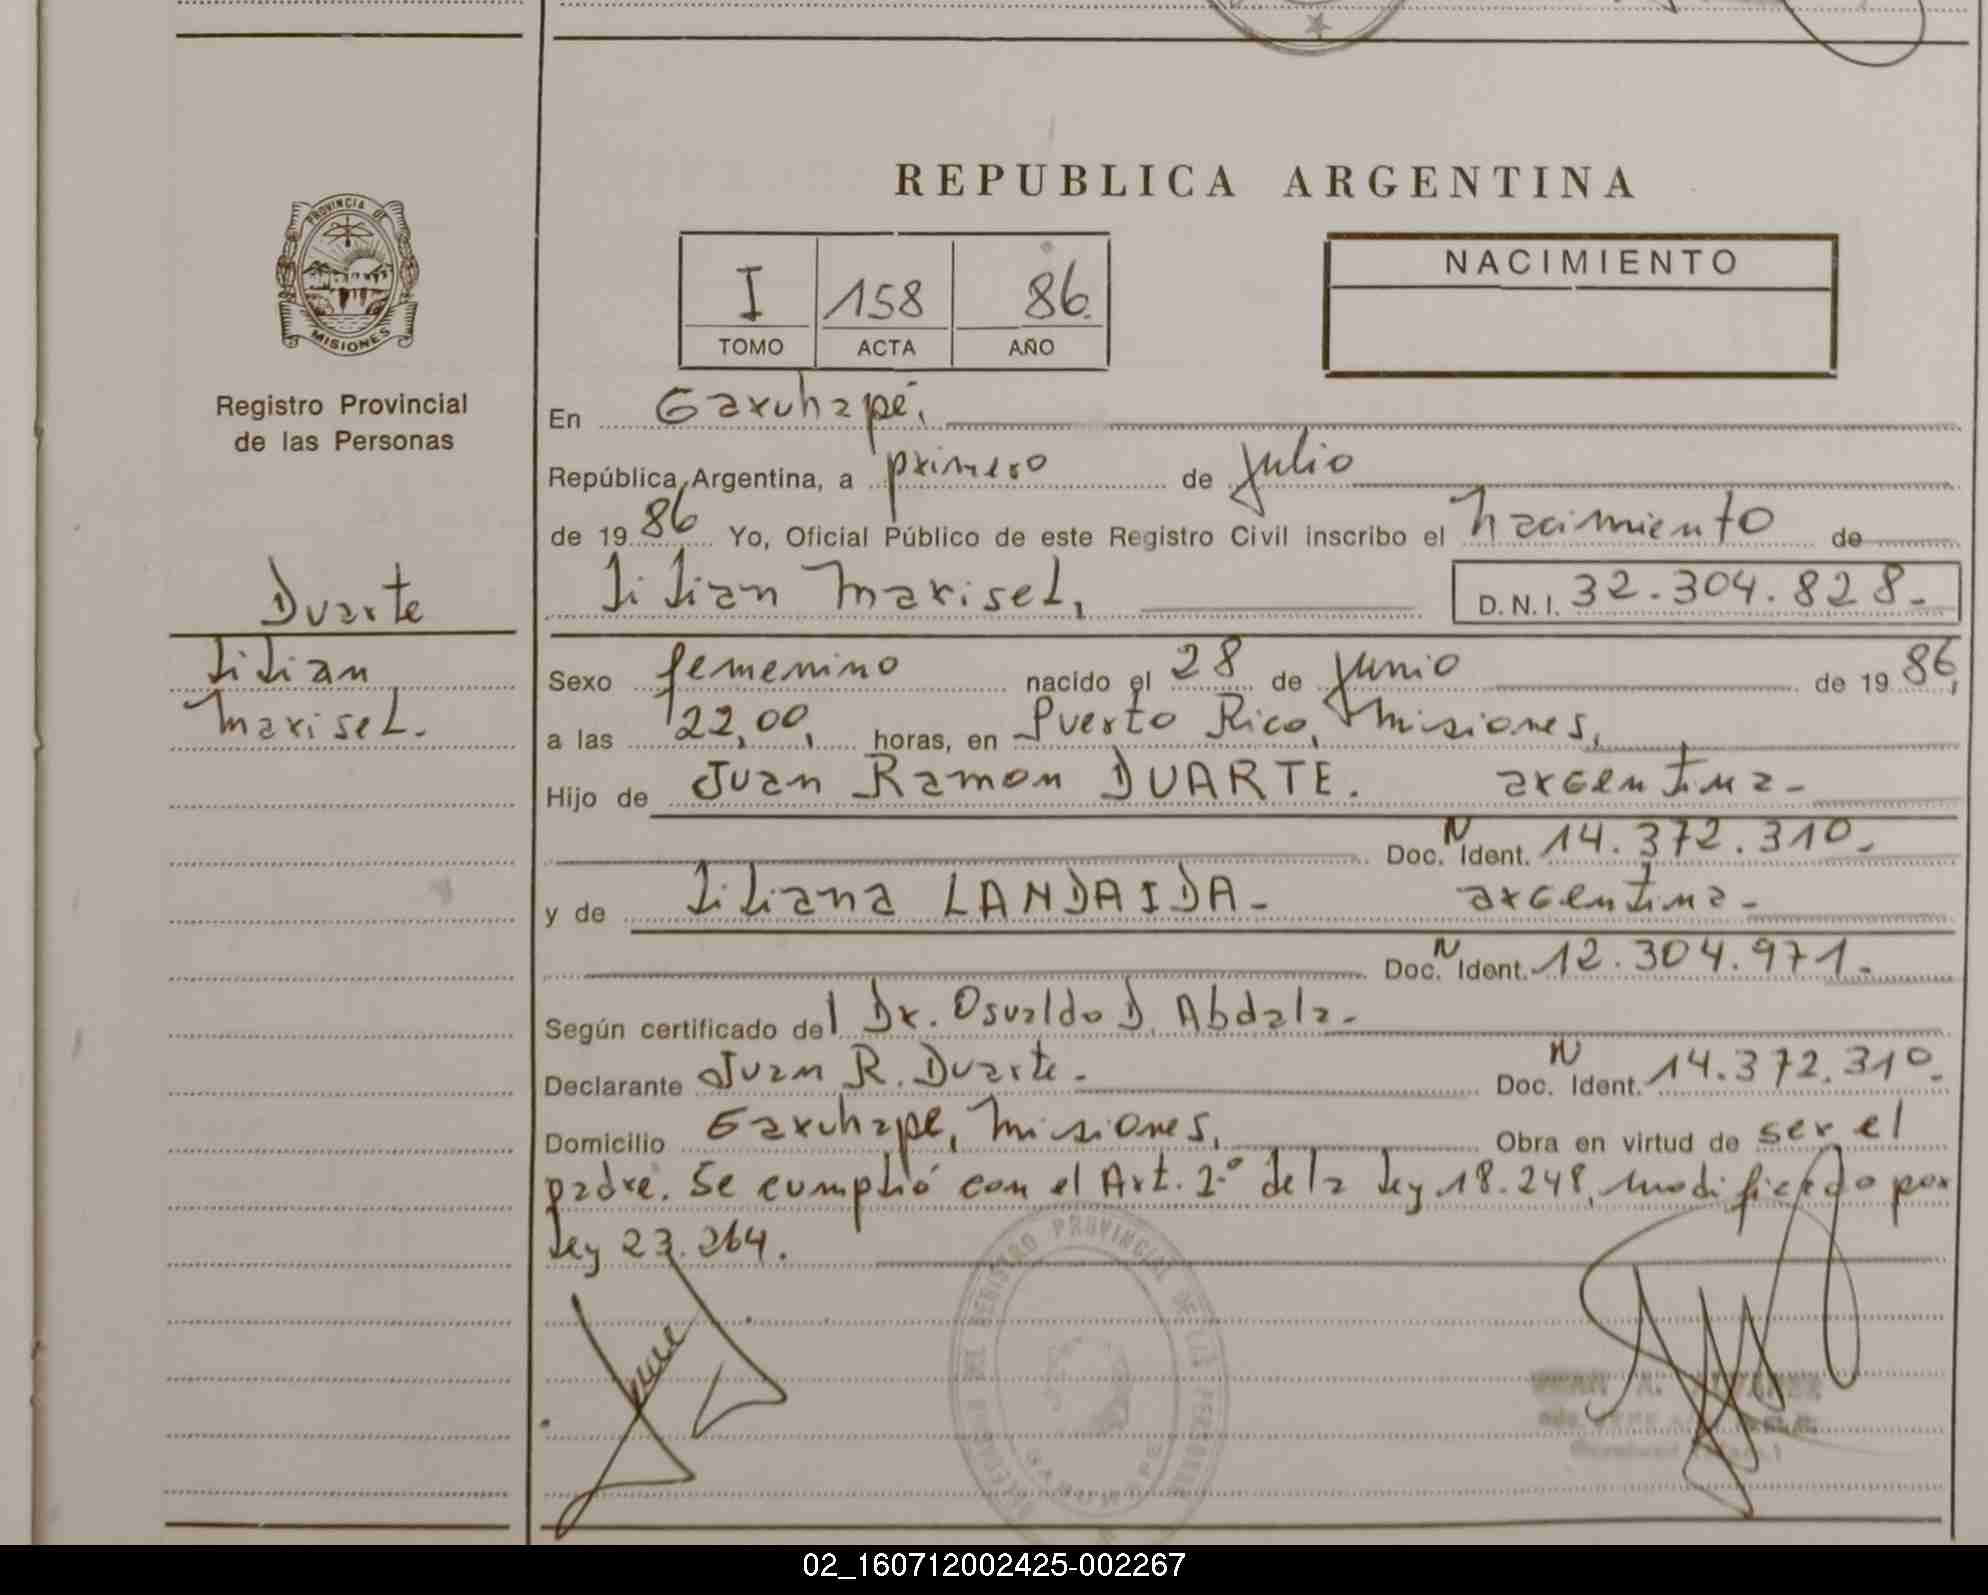 REPUBLICA ARGENTINA
PROVINCIA DE
MISIONES
Registro Provincial
de las Personas
I 158 86.
TOMO ACTA AÑO
NACIMIENTO
En Garuhapé,
República Argentina, a primero de Julio
de 19 86 Yo, Oficial Público de este Registro Civil inscribo el nacimiento de
Lilian Marisel, D.N.I. 32.304.828-
Duarte
Lilian
Marisel.
Sexo femenino nacido el 28 de junio de 19 86,
a las 22,00, horas, en Puerto Rico, Misiones,
Hijo de Juan Ramon DUARTE. argentina-
Doc. N Ident. 14.372.310-
y de Liliana LANDAIDA- argentina-
Doc. N Ident. 12.304.971-
Según certificado del Dr. Osvaldo D. Abdala-
Declarante Juan R. Duarte- Doc. N Ident. 14.372.310-
Domicilio Garuhape, Misiones, Obra en virtud de ser el
padre. Se cumplió con el Art. 2º de la Ley 18.248, modificado por
Ley 23.264.
REGISTRO PROVINCIAL DE LAS PERSONAS
GARUHAPE
02_160712002425-002267